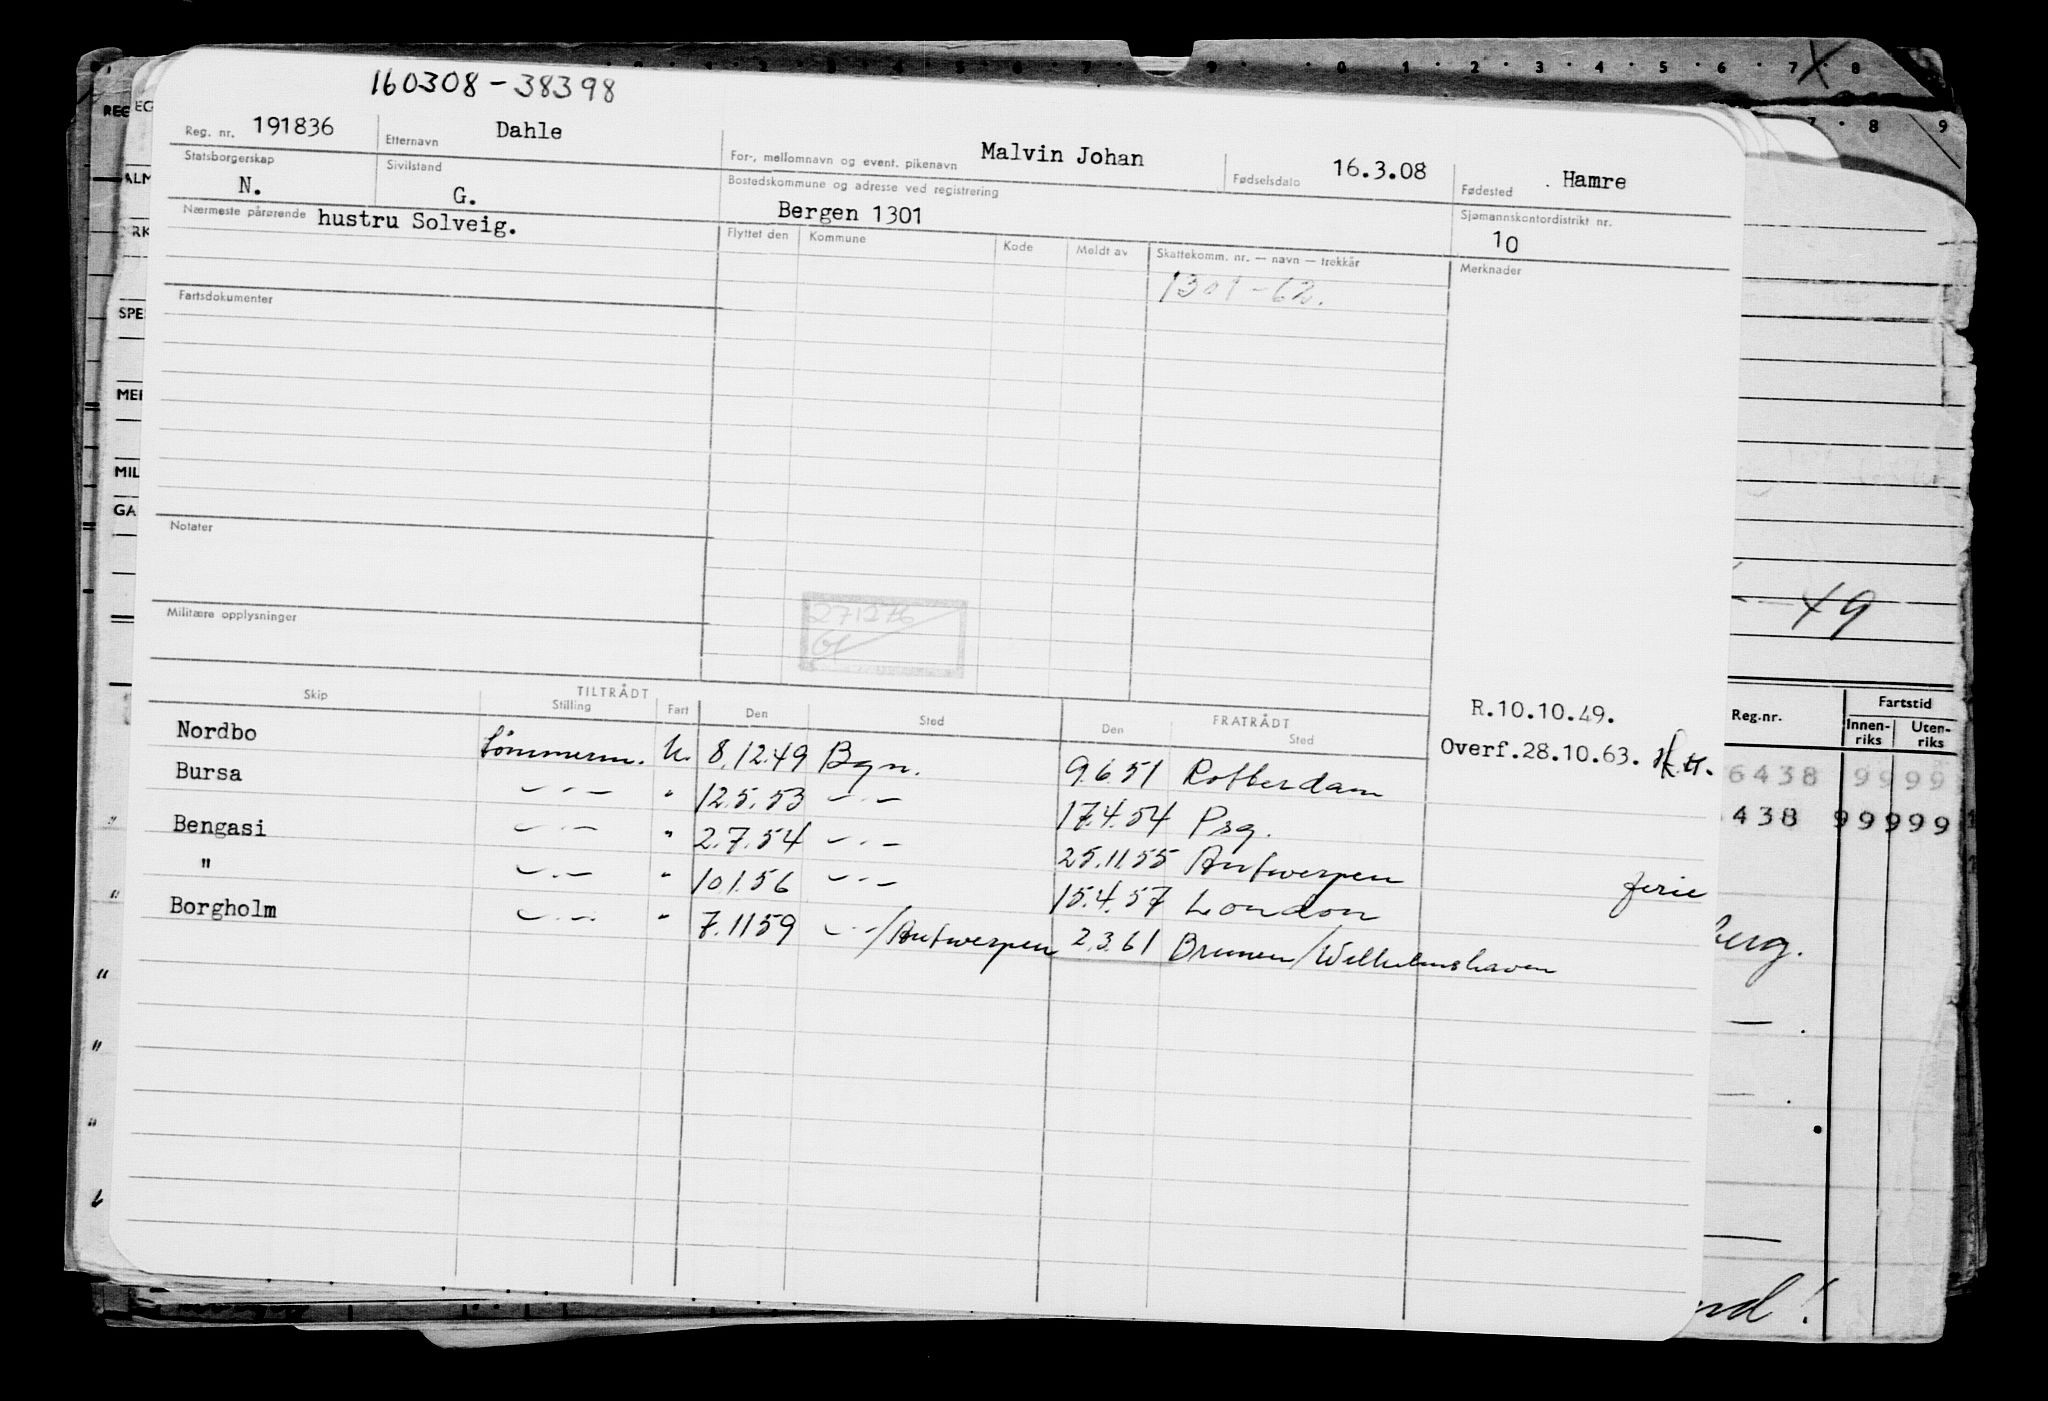 160308-38398
Reg. nr. 191836 Etternavn Dahle For-, mellomnavn og event. pikenavn Malvin Johan Fødselsdato 16.3.08 Fødested Hamre
Statsborgerskap N. Sivilstand G. Bostedskommune og adresse ved registrering Bergen 1301 Sjømannskontordistrikt nr. 10
Nærmeste pårørende hustru Solveig. Flyttet den Kommune Kode Meldt av Skattekomm. nr. — navn — trekkår Merknader
1301-62.
Fartsdokumenter
Notater
271276
Militære opplysninger
Skip TILTRÅDT Stilling Fart Den Sted FRATRÅDT Den Sted
R.10.10.49.
Overf.28.10.63.
Nordbo tömmerm. U. 8.12.49 Bgn. 9.6.51 Rotterdam
Bursa —"— " 12.5.53 —"— 17.4.54 Psg.
Bengasi —"— " 2.7.54 —"— 25.11.55 Antwerpen ferie
" —"— " 10.1.56 —"— 15.4.57 London
Borgholm —"— " 7.11.59 —"—/Antwerpen 2.3.61 Bremen/Wilhelmshaven
49
Reg.nr. Fartstid
Innen-riks Uten-riks
6438 9999
438 99999
berg.
nd!
REG
ALM
SPE
MER
MIL
GA